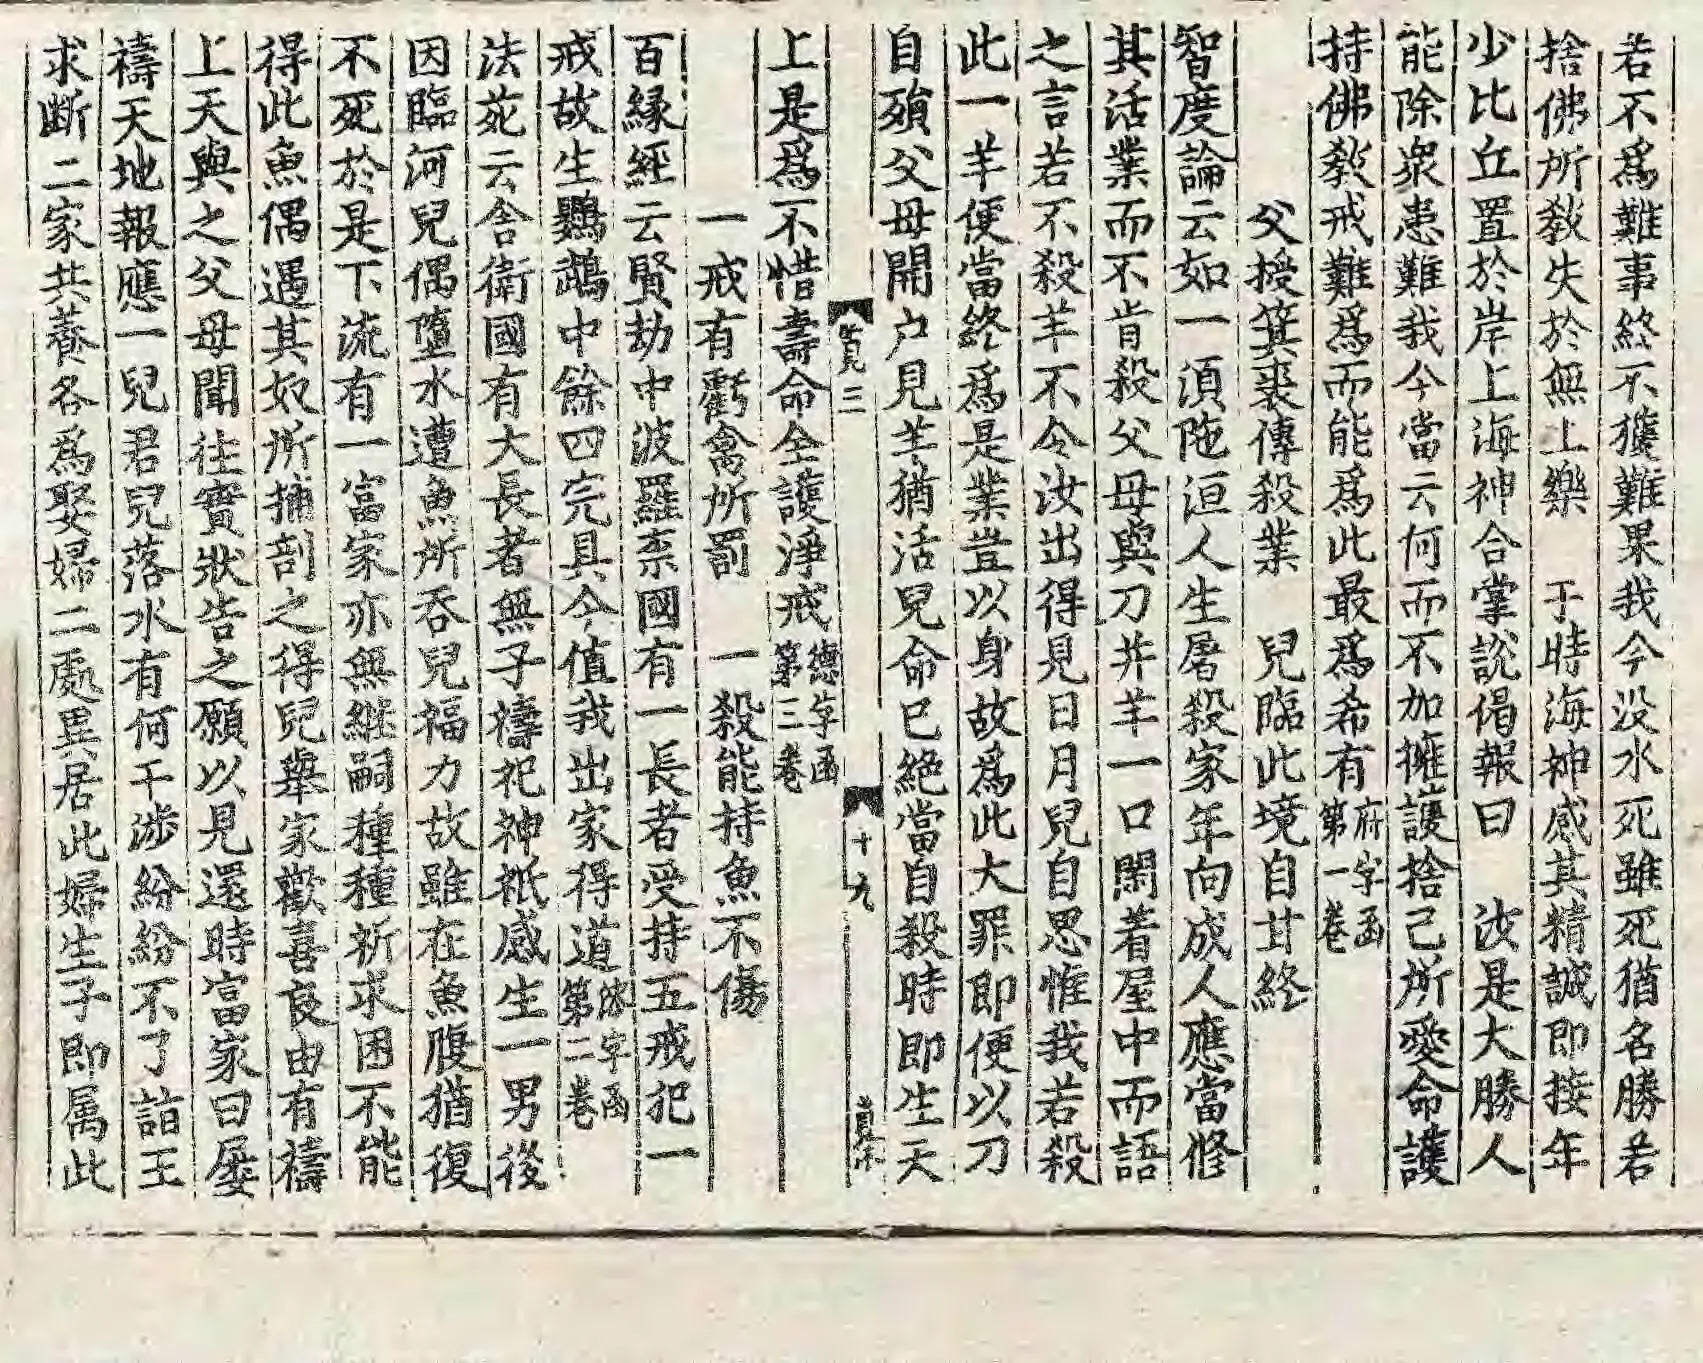 若不爲難事終不獲難果我今没水死雖死猶名勝若
捨佛所敎失於無上樂　于時海神感其精誠即接年
少比丘置於岸上海神合掌說偈報曰　汝是大勝人
能除衆患難我今當云何而不加擁護捨己所愛命護
持佛敎戒難爲而能爲此最爲希有府字函第一卷
父授箕裘傳殺業　兒臨此境自甘終
智度論云如一須陁洹人生屠殺家年向成人應當修
其活業而不肯殺父母與刀并羊一口閉著屋中而語
之言若不殺羊不令汝出得見日月兒自思惟我若殺
此一羊便當終爲是業豈以身故爲此大罪即便以刀
自殞父母開户見羊猶活兒命已絶當自殺時即生天
覧三　十九
上是爲不惜壽命全護淨戒德字函第三卷
一戒有虧禽所罰　一殺能持魚不傷
百緣經云賢劫中波羅柰國有一長者受持五戒犯一
戒故生鸚鵡中餘四完具今值我出家得道字函第二卷
法苑云舍衛國有大長者無子禱祀神祇感生一男後
因臨河兒偶墮水遭魚所吞兒福力故雖在魚腹猶復
不死於是下流有一富家亦無継嗣種種祈求困不能
得此魚偶遇其奴所捕剖之得兒舉家歡喜良由有禱
上天與之父母聞往實狀告之願以見還時富家曰屡
禱天地報應一兒君兒落水有何干涉紛紛不了詣王
求断二家共養各爲娶婦二處異居此婦生子即属此